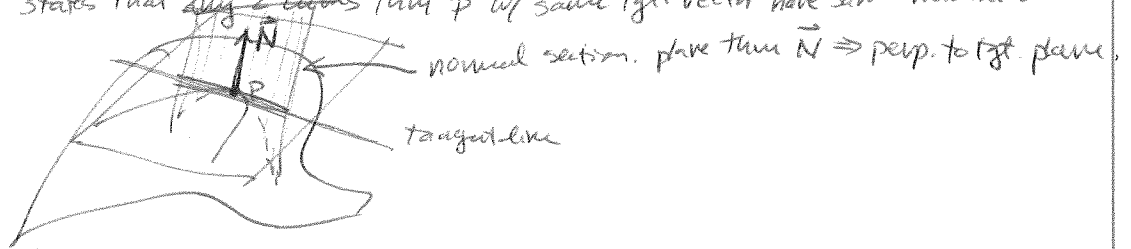 states that any 2 curves thru p w/ same tgt vector have same
N⃗
normal section. plane thru N⃗ ⇒ perp. to tgt plane.
P
tangent line